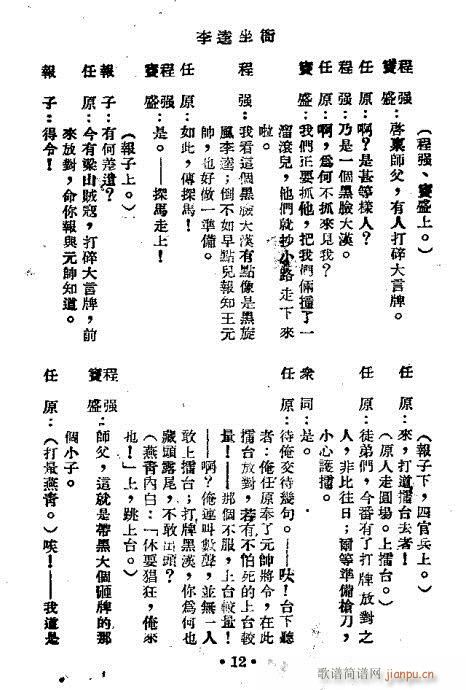 李逵坐衙
（程强、竇盛上。）
程强
竇盛：啓稟師父，有人打碎大言牌。
任 原：啊？是甚等樣人？
程 强：乃是一個黑臉大漢。
任 原：啊，爲何不抓來見我？
竇 盛：我們正要抓他，把我們倆撞了一
溜滾兒，他們就抄小路走下來
啦。
程 强：我看這個黑臉大漢有點像是黑旋
風李逵；倒不如早點兒報知王元
帥，也好做一準備。
任 原：如此，傳探馬！
程 强
竇 盛：是。——探馬走上！
（報子上。）
報 子：有何差遣？
任 原：今有梁山賊寇，打碎大言牌，前
來放對，命你報與元帥知道。
報 子：得令！
（報子下，四官兵上。）
任 原：來，打道擂台去者！
（原人走圓場。上擂台。）
任 原：徒弟們，今番有了打牌放對之
人，非比往日；爾等準備槍刀，
小心護擂。
衆 同：是。
任 原：待俺交待幾句。——呔！台下聽
者：俺任原奉了元帥將令，在此
擂台放對，若有不怕死的上台較
量！——那個不服，上台較量！
——啊？俺連叫數聲，並無一人
敢上擂台；打牌黑漢，你爲何也
藏頭露尾，不敢出頭？
（燕青內白：「休要猖狂，俺來
也！」上，跳上台。）
程强
竇盛：師父，這就是帶黑大個砸牌的那
個小子。
任 原：（打量燕青。）唉！——我道是
·12·
歌谱简谱网
jianpu.cn